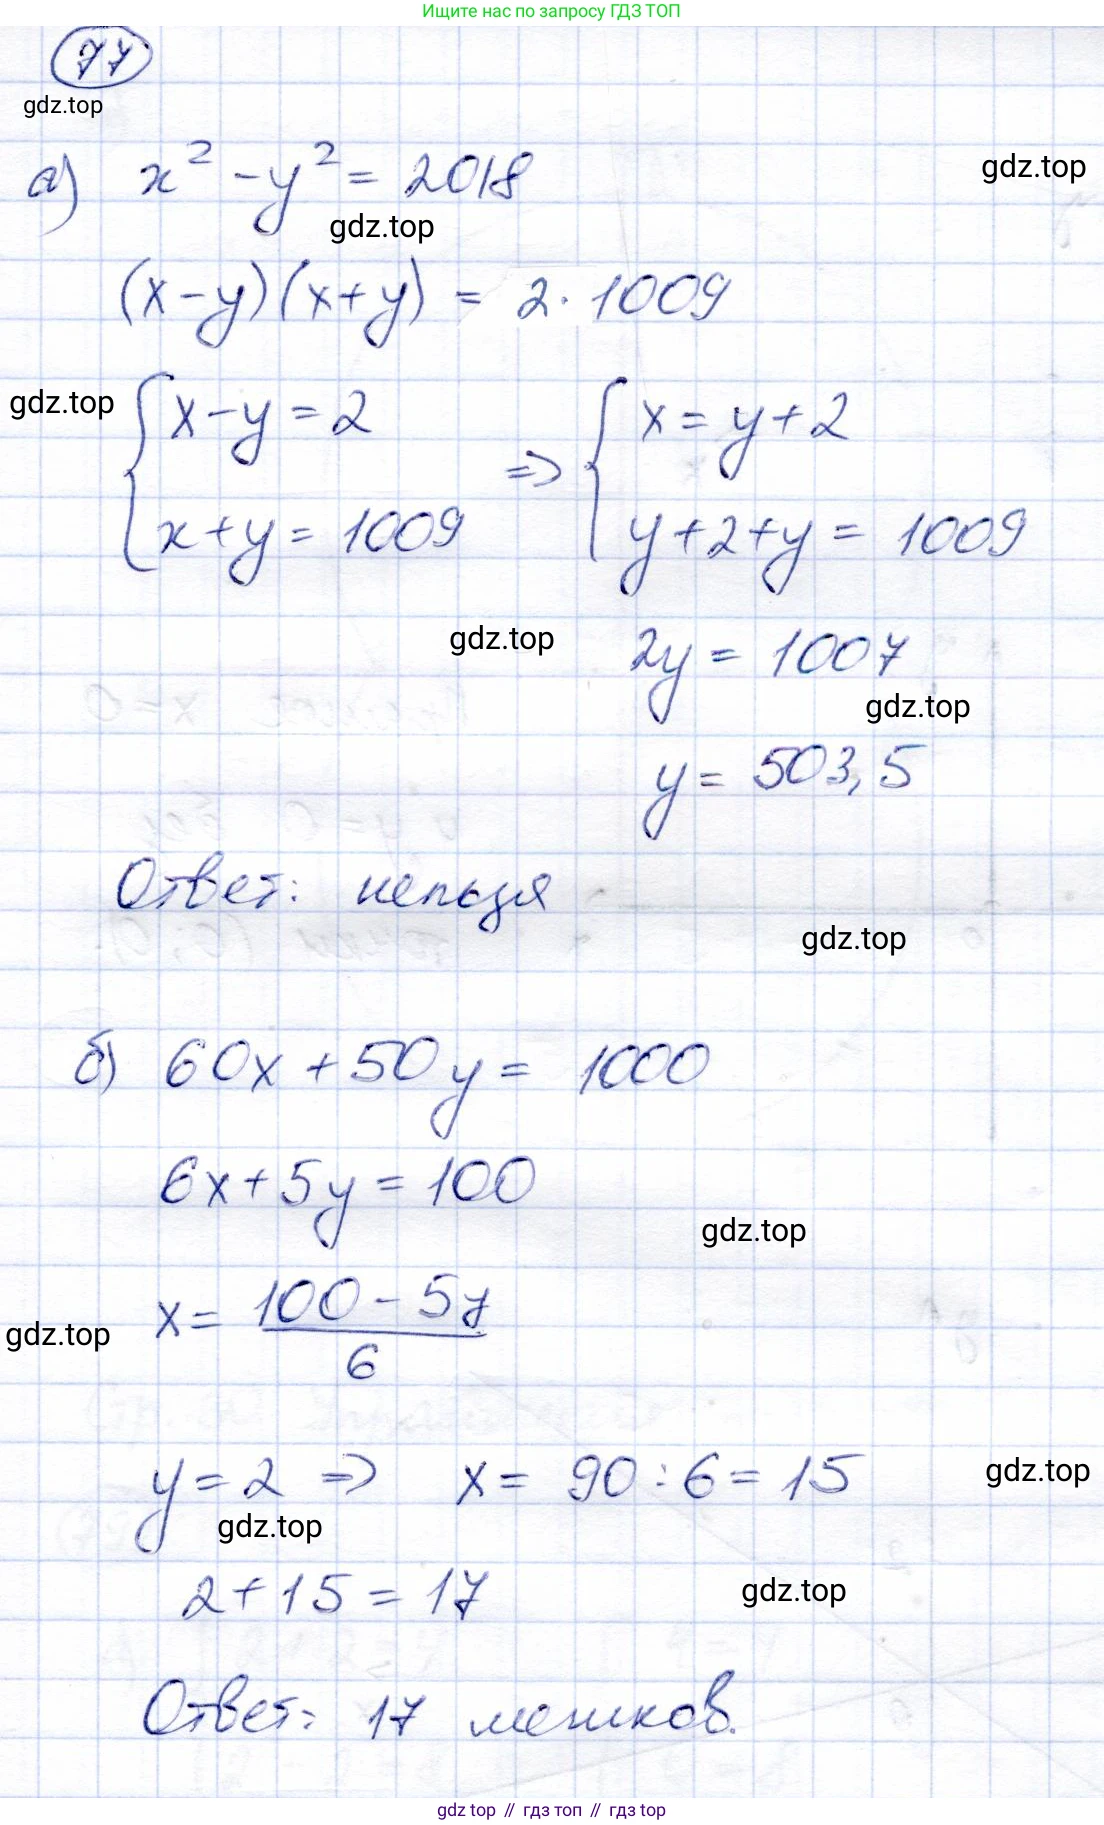 Ищите нас по запросу ГДЗ ТОП
77
gdz.top
а) x² - y² = 2018
gdz.top
gdz.top
(x-y)(x+y) = 2·1009
gdz.top
{ x-y=2
x+y=1009
⇒ { x=y+2
y+2+y=1009
gdz.top
2y = 1007
gdz.top
y = 503,5
Ответ: нельзя
gdz.top
б) 60x + 50y = 1000
6x+5y=100
gdz.top
x = (100-5y)/6
gdz.top
y=2 ⇒ x= 90:6=15
gdz.top
gdz.top
2+15=17
gdz.top
Ответ: 17 мешков.
gdz top // гдз топ // гдз top